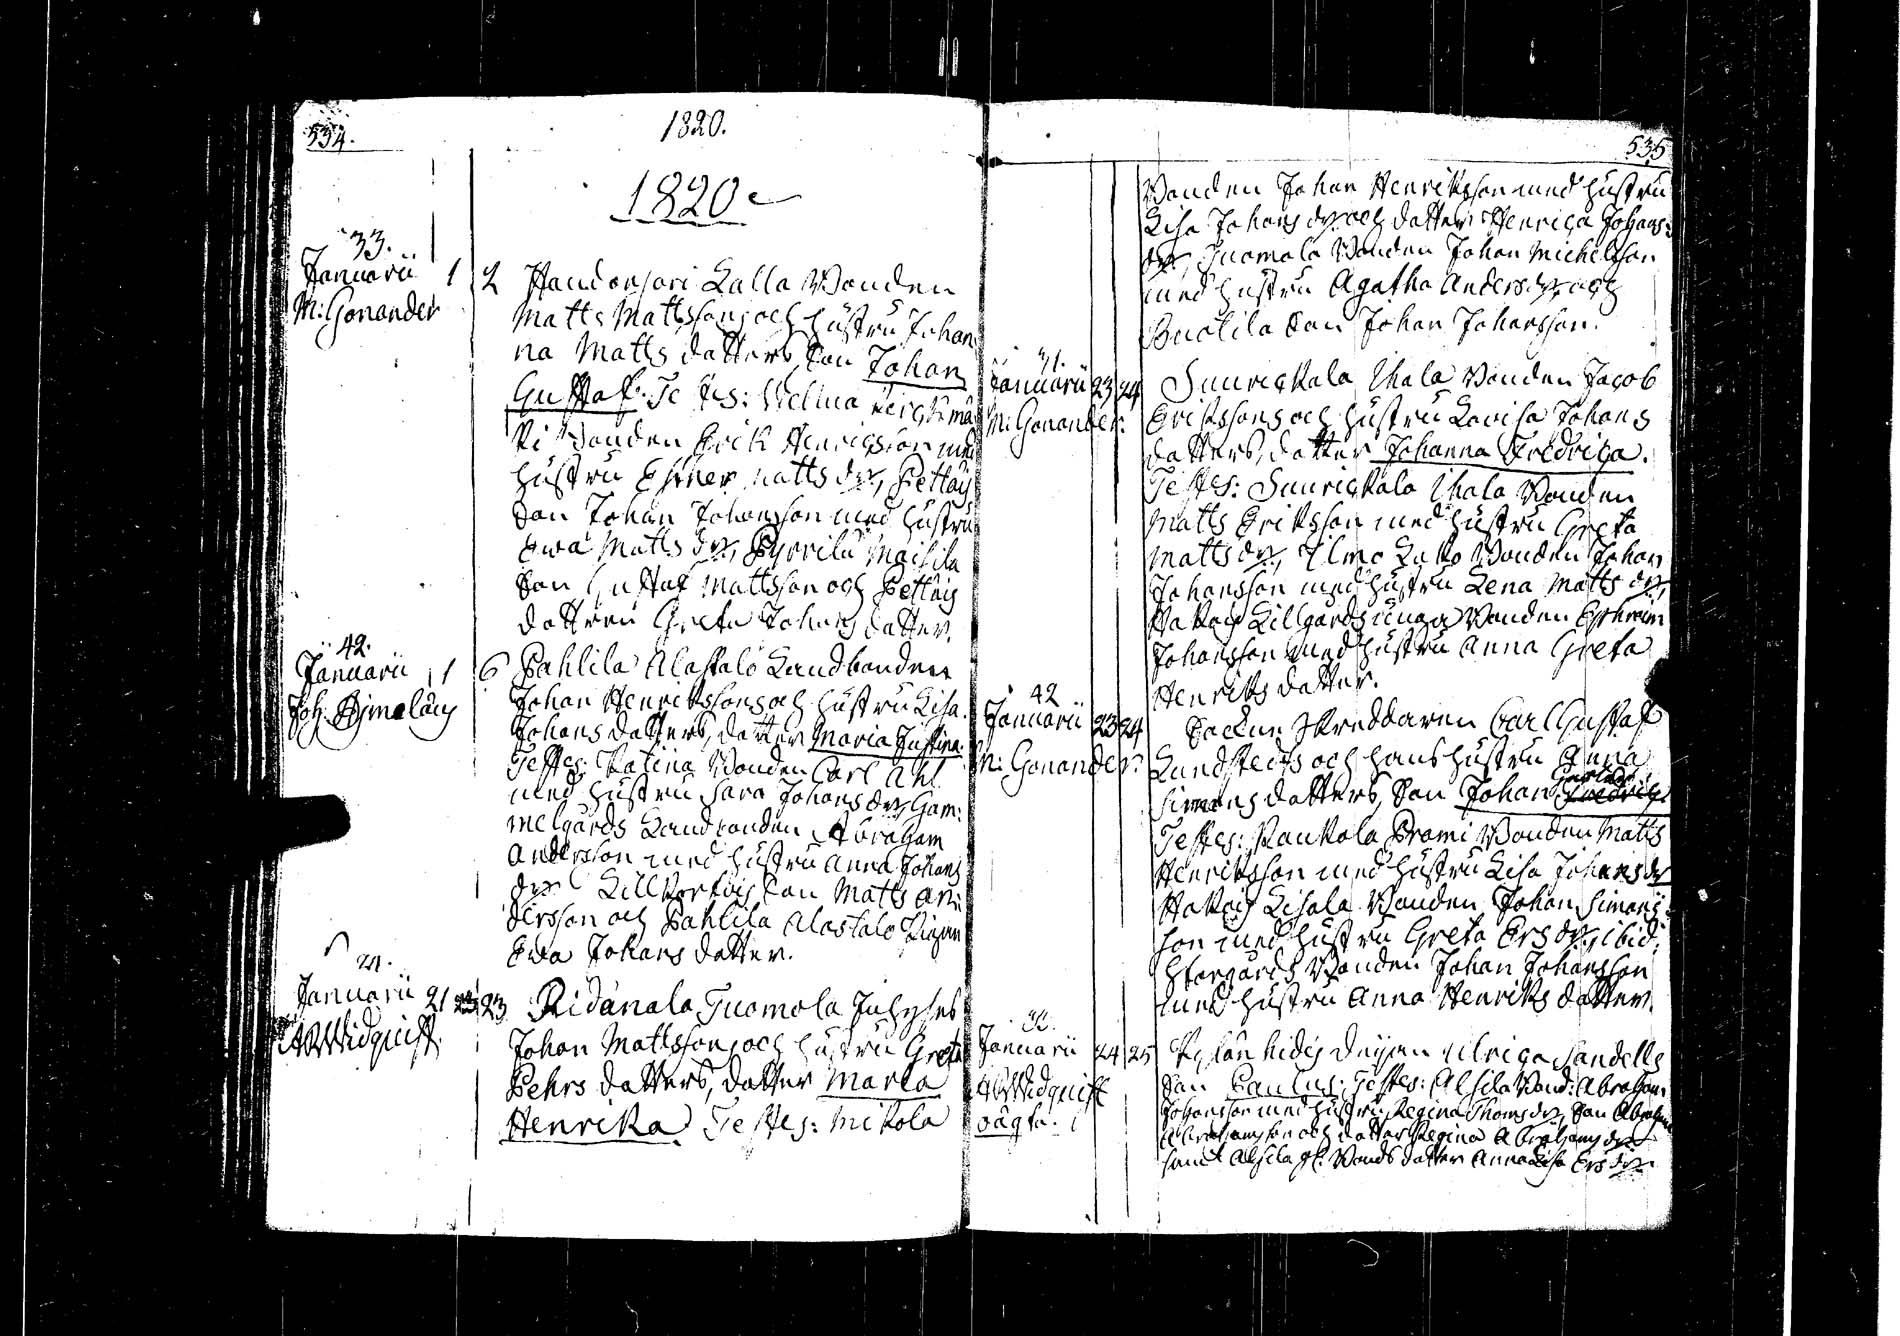 534.
1820.
1820
33.
Januarii 1 2 Haudonsari Lalla Bonden
M: Gonander Matts Mattssons och hustru Johan
na Matts datters, Son Johan
Gustaf. Testes:
Bonden Erik Henricsson med
hustru Esther Matts dr, Pettäis
Son Johan Johansson med hustru
Ewa Matts dr, Pyyrilä Maisila
Son Gustaf Mattsson och Pettäis
dottren Greta Johans datter.
42.
Januarii 1 6 Pahlila Alastalo Landbonden
Joh. Johan Henrikssons och hustru Lisa
Johans datters, datter Maria Justina.
Testes: Bonden Carl
med hustru Sara Johans dr, Gam:
melgårds Landbonden Abraham
Andersson med hustru Anna Johans
dr Son Matts An:
dersson och Pahlila Alastalo Pigan
Ewa Johans datter.
21.
Januarii 21 23 Ridänala Tuomola
A Widquist. Johan Mattssons och hustru Greta
Pehrs datters, datter Maria
Henrika. Testes: Mikola
535
Bonden Johan Henriksson med hustru
Lisa Johans dr. och datter Henrica Johans:
dr, Tuomola Bonden Johan Michelsson
med hustru Agatha Anders dr, och
Son Johan Johansson.
31.
Januarii 23 24 Suurickala Uhala Bonden Jacob
M: Gonander. Erikssons och hustru Lovisa Johans
datters, datter Johanna Fredrica.
Testes: Suurickala Uhala Bonden
Matts Eriksson med hustru Greta
Matts dr, Bonden Johan
Johansson med hustru Lena Matts dr,
Lillgårds unga Bonden Ephraim
Johansson med hustru Anna Greta
Henriks datter.
42
Januarii 23 24 Skreddaren Carl Gustaf
M: Gonander. Lundstedts och hans hustru Anna
Simons datters, Son Johan Gustaf
Testes: Prami Bonden Matts
Henriksson med hustru Lisa Johans dr
Lisala Bonden Johan Simons:
son med hustru Greta Ers dr, ibid:
Storgårds Bonden Johan Johansson
med hustru Anna Henriks datter.
Januarii 24 25 Pigan Ulrica Sandells
A Widquist Son Paulus. Testes: Alsila Bond: Abraham
oägta. Johansson med hustru Regina Thoms dr, Son Abraham
Abrahamsson och datter Regina Abrahams dr
samt Alsila gl. Bonds datter Anna Lisa Ers dr